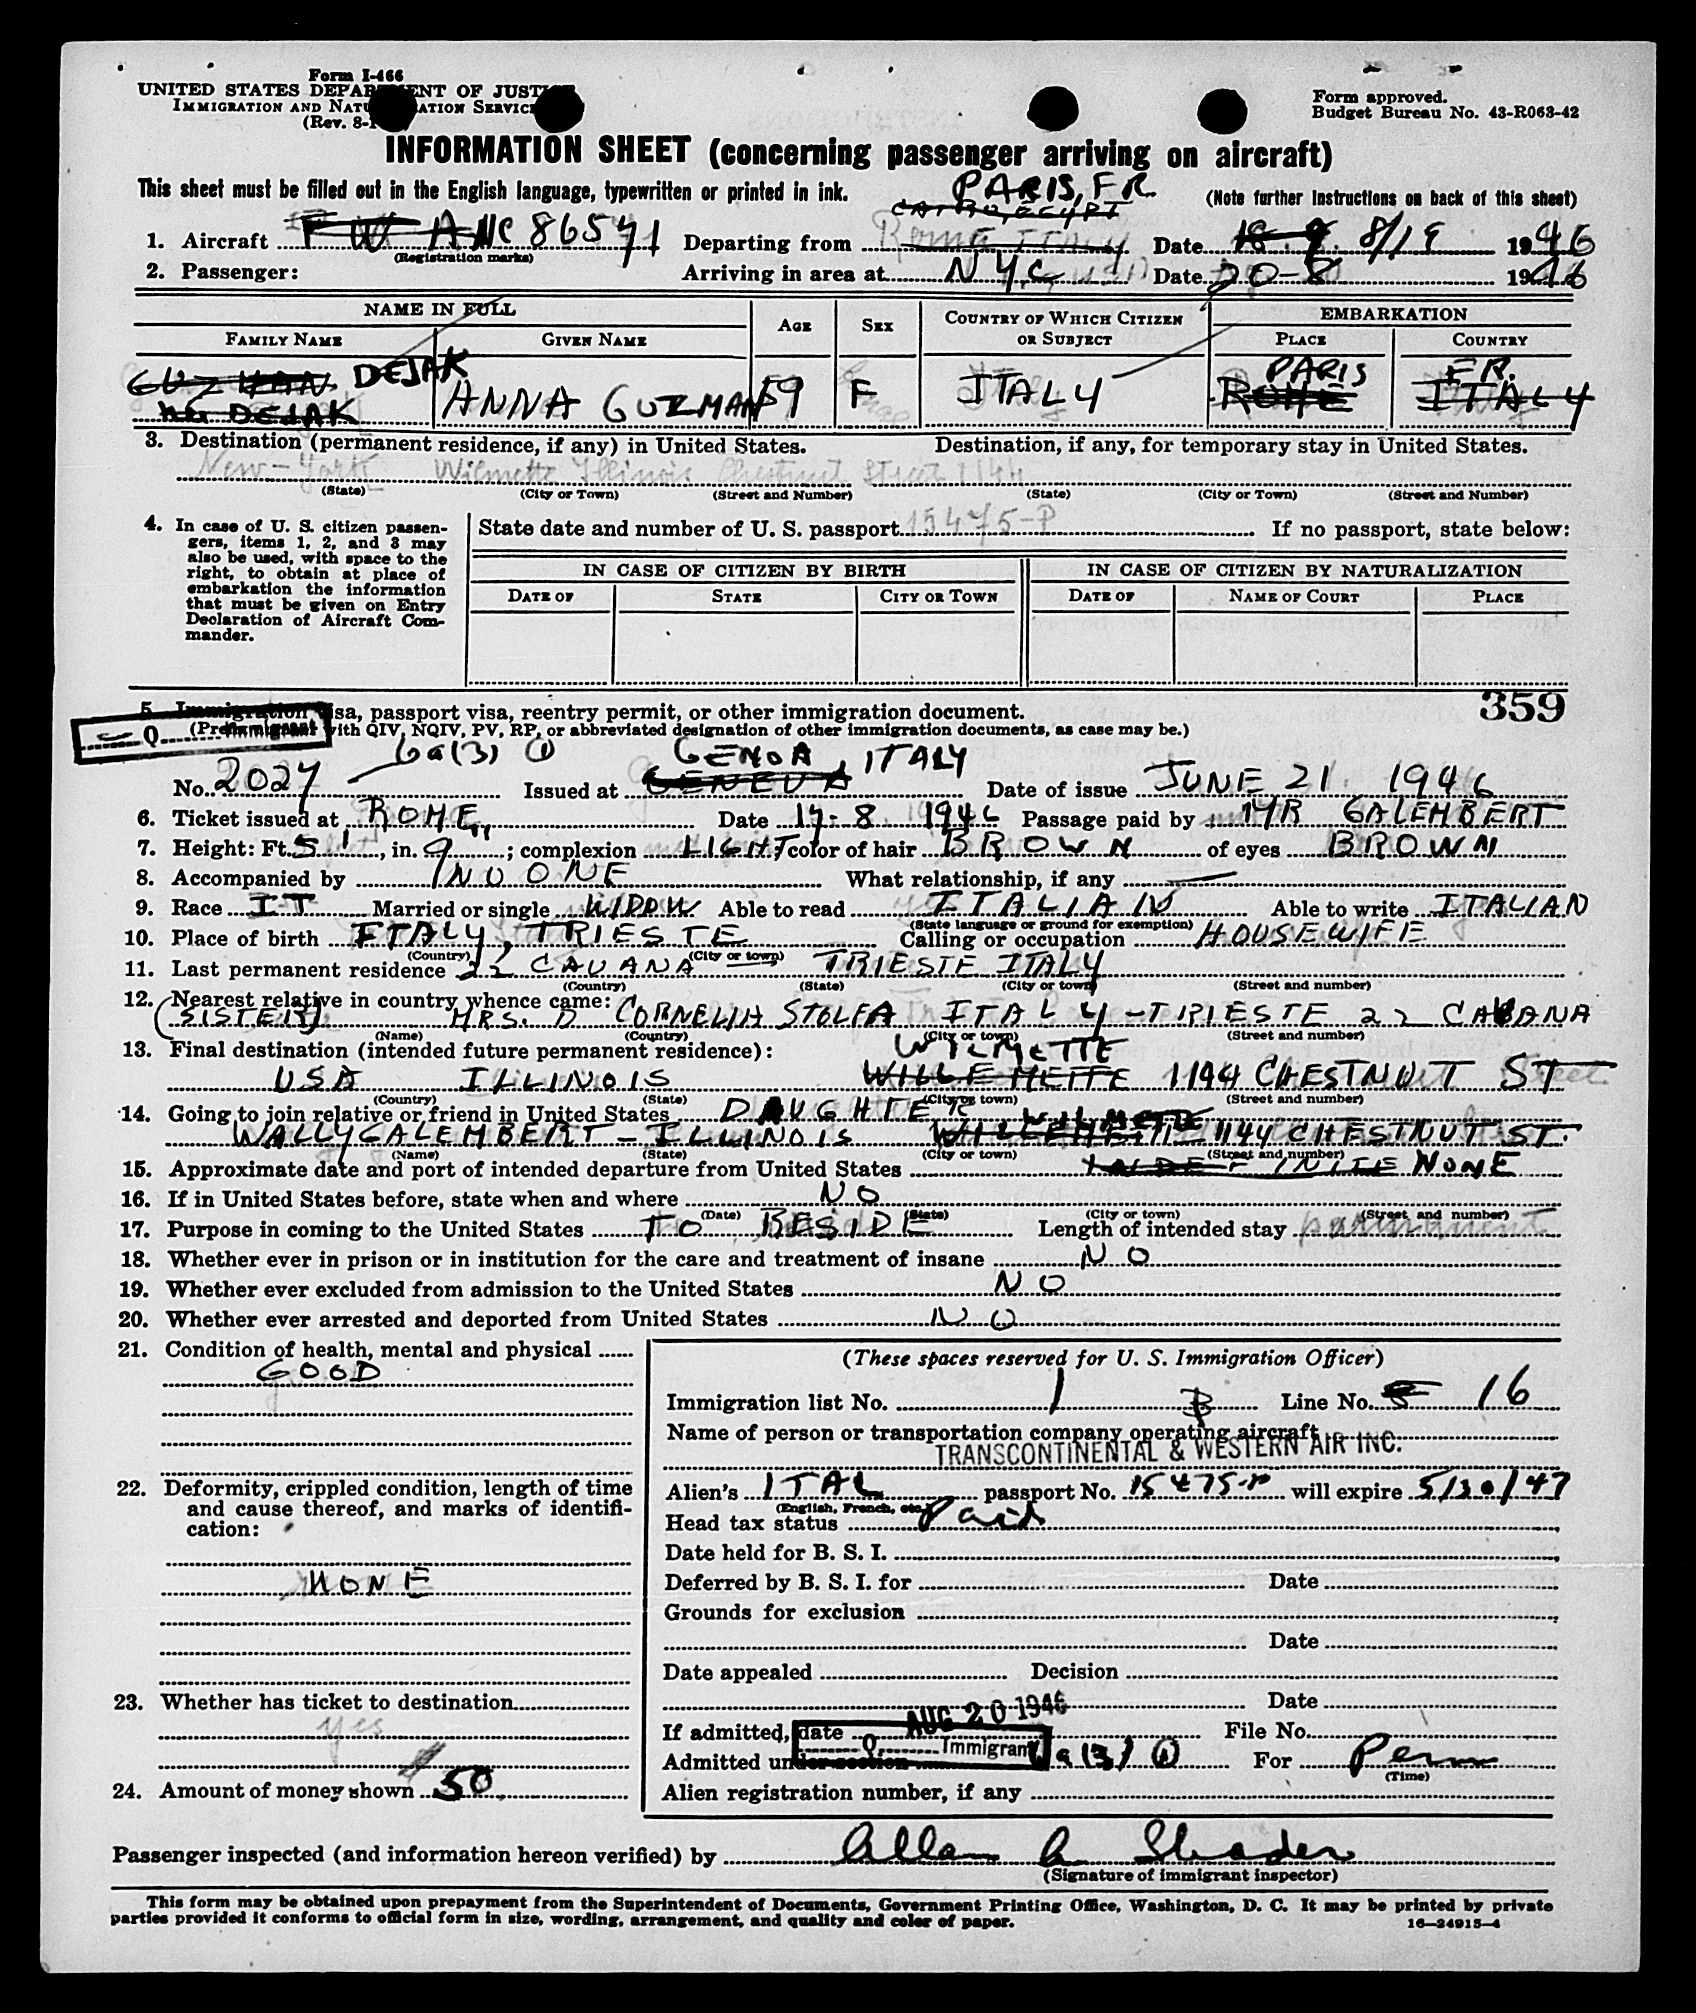 Form I-466
UNITED STATES DEPARTMENT OF JUSTICE
IMMIGRATION AND NATURALIZATION SERVICE
(Rev. 8-1
Form approved.
Budget Bureau No. 43-R063-42
INFORMATION SHEET (concerning passenger arriving on aircraft)
This sheet must be filled out in the English language, typewritten or printed in ink. (Note further instructions on back of this sheet)
PARIS, FR
CAIRO, EGYPT
1. Aircraft NC 86541 Departing from Rome ITALY Date 8/19 1946
(Registration marks)
2. Passenger: Arriving in area at NYC Date 20-8 1946
NAME IN FULL AGE SEX COUNTRY OF WHICH CITIZEN OR SUBJECT EMBARKATION
FAMILY NAME GIVEN NAME PLACE COUNTRY
GUZMAN DEJAK PARIS FR.
NG DEJAK ANNA GUZMAN 59 F ITALY ROME ITALY
3. Destination (permanent residence, if any) in United States. Destination, if any, for temporary stay in United States.
New-York Wilmette Illinois Chestnut Street 1144
(State) (City or Town) (Street and Number) (State) (City or Town) (Street and Number)
4. In case of U. S. citizen passengers, items 1, 2, and 3 may also be used, with space to the right, to obtain at place of embarkation the information that must be given on Entry Declaration of Aircraft Commander.
State date and number of U. S. passport 15475-P If no passport, state below:
IN CASE OF CITIZEN BY BIRTH IN CASE OF CITIZEN BY NATURALIZATION
DATE OF STATE CITY OR TOWN DATE OF NAME OF COURT PLACE
359
5. Immigration visa, passport visa, reentry permit, or other immigration document.
Q Immigrant
(Prefix with QIV, NQIV, PV, RP, or abbreviated designation of other immigration documents, as case may be.)
6a(3) ① GENOA, ITALY
No. 2027 Issued at GENEVA Date of issue JUNE 21 1946
6. Ticket issued at ROME Date 17-8 1946 Passage paid by MR GALEMBERT
7. Height: Ft. 5', in. 9"; complexion LIGHT; color of hair BROWN of eyes BROWN
8. Accompanied by NO ONE What relationship, if any —
9. Race IT Married or single WIDOW Able to read ITALIAN Able to write ITALIAN
(State language or ground for exemption)
10. Place of birth ITALY, TRIESTE Calling or occupation HOUSEWIFE
(Country) (City or town)
11. Last permanent residence 22 CAVANA TRIESTE ITALY
(Country) (State) (City or town) (Street and number)
12. Nearest relative in country whence came:
(SISTER) MRS. D CORNELIA STOLFA ITALY-TRIESTE 22 CAVANA
(Name) (Country) (City or town) (Street and number)
13. Final destination (intended future permanent residence): WILMETTE
USA ILLINOIS WILLEMETTE 1144 CHESTNUT ST
(Country) (State) (City or town) (Street and number)
14. Going to join relative or friend in United States DAUGHTER WILMETTE
WALLY GALEMBERT - ILLINOIS WILLEMETTE - 1144 CHESTNUT ST.
(Name) (State) (City or town) (Street and number)
15. Approximate date and port of intended departure from United States INDEFINITE NONE
16. If in United States before, state when and where NO
(Date) (State) (City or town) (Street and number)
17. Purpose in coming to the United States TO RESIDE Length of intended stay permanent
18. Whether ever in prison or in institution for the care and treatment of insane NO
19. Whether ever excluded from admission to the United States NO
20. Whether ever arrested and deported from United States NO
21. Condition of health, mental and physical
GOOD
22. Deformity, crippled condition, length of time and cause thereof, and marks of identification:
NONE
23. Whether has ticket to destination
yes
24. Amount of money shown $50
(These spaces reserved for U. S. Immigration Officer)
Immigration list No. 1 B Line No. 5 16
Name of person or transportation company operating aircraft
TRANSCONTINENTAL & WESTERN AIR INC.
Alien's ITAL passport No. 15475-P will expire 5/30/47
(English, French, etc.)
Head tax status Paid
Date held for B. S. I.
Deferred by B. S. I. for Date
Grounds for exclusion
Date
Date appealed Decision
Date
AUG 20 1946
If admitted, date File No.
Q Immigrant
Admitted under section 6a(3) ① For Perm
(Time)
Alien registration number, if any
Passenger inspected (and information hereon verified) by Allan A Shader
(Signature of immigrant inspector)
This form may be obtained upon prepayment from the Superintendent of Documents, Government Printing Office, Washington, D. C. It may be printed by private
parties provided it conforms to official form in size, wording, arrangement, and quality and color of paper. 16—24915-4